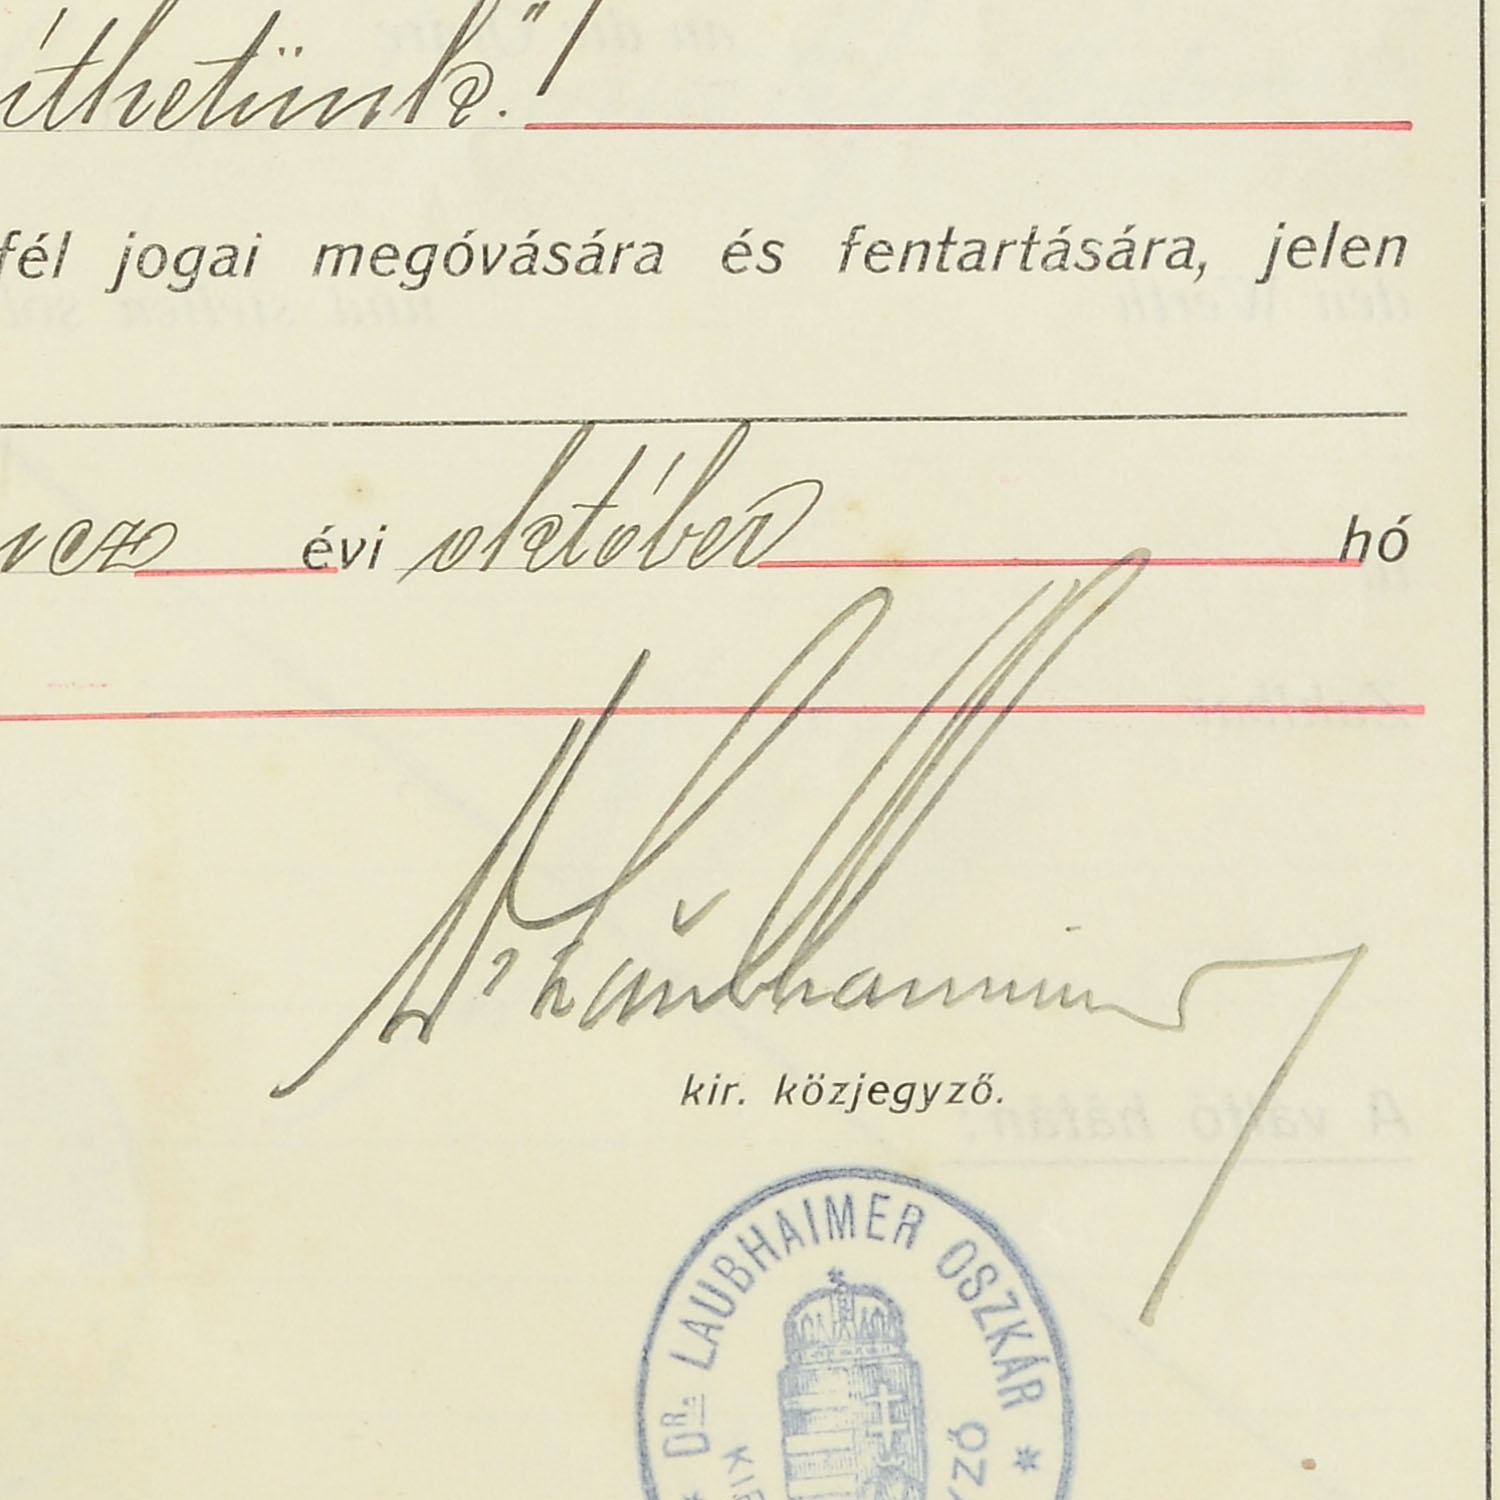 íthetünk."
fél jogai megóvására és fentartására, jelen
évi október hó
Dr Laubhaimer
kir. közjegyző.
* DR. LAUBHAIMER OSZKÁR *